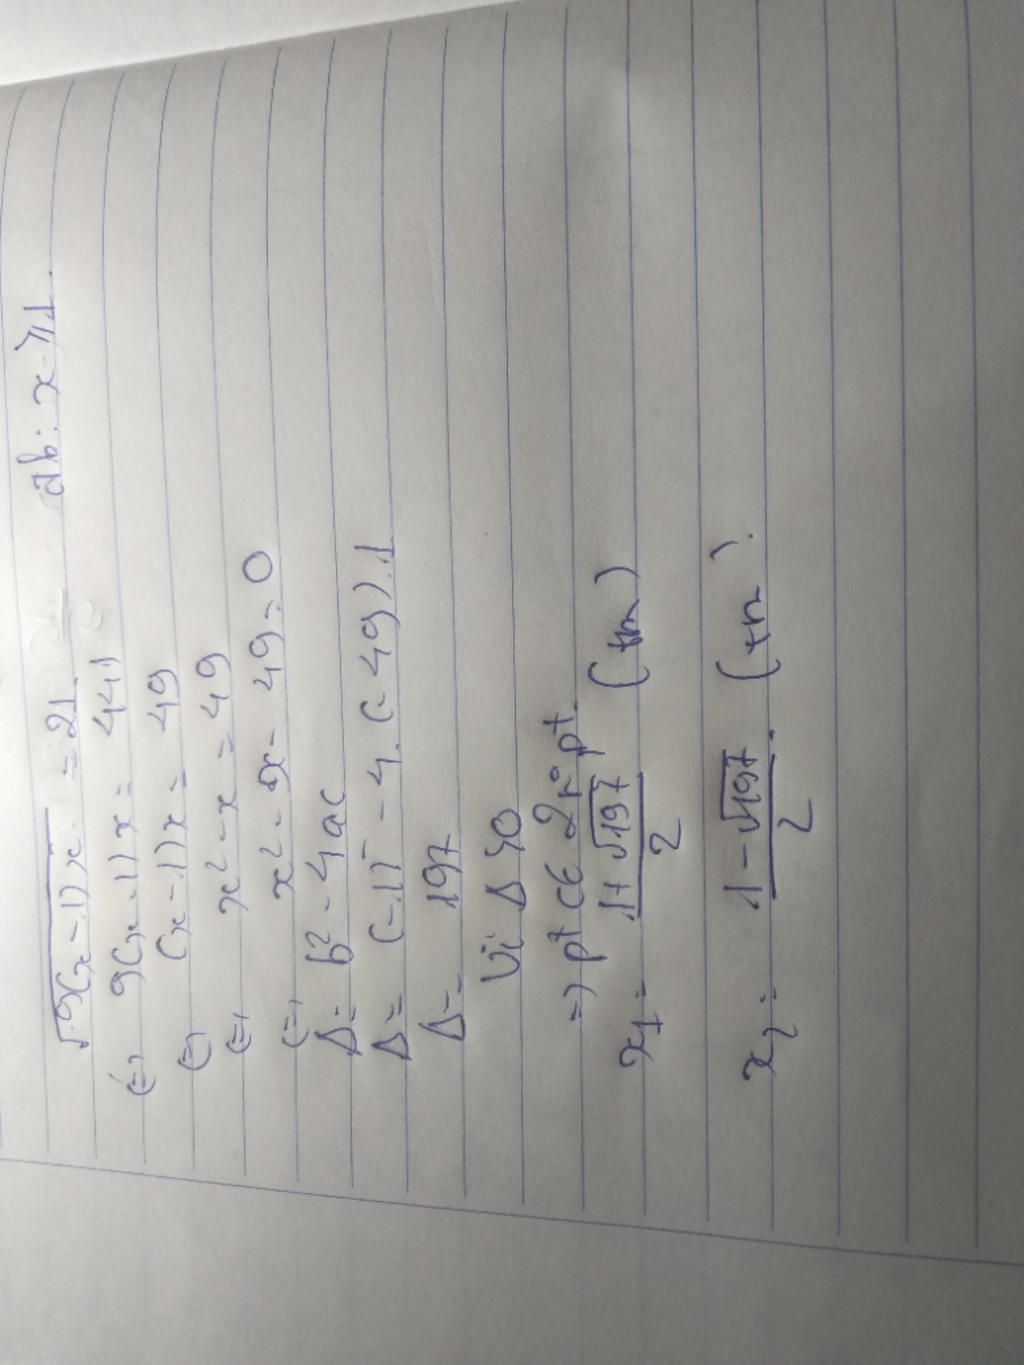 √9(x-1)x = 21. đk: x ≥ 1.
(=) 9(x-1)x = 441
(=) (x-1)x = 49
(=) x² - x = 49
(=) x² - x - 49 = 0
Δ = b² - 4ac
Δ = (-1)² - 4.(-49).1
Δ = 197
Vì Δ >0
=) pt có 2 no pt.
x₁ = (1+√197)/2 (tm)
x₂ = (1-√197)/2 (tm).